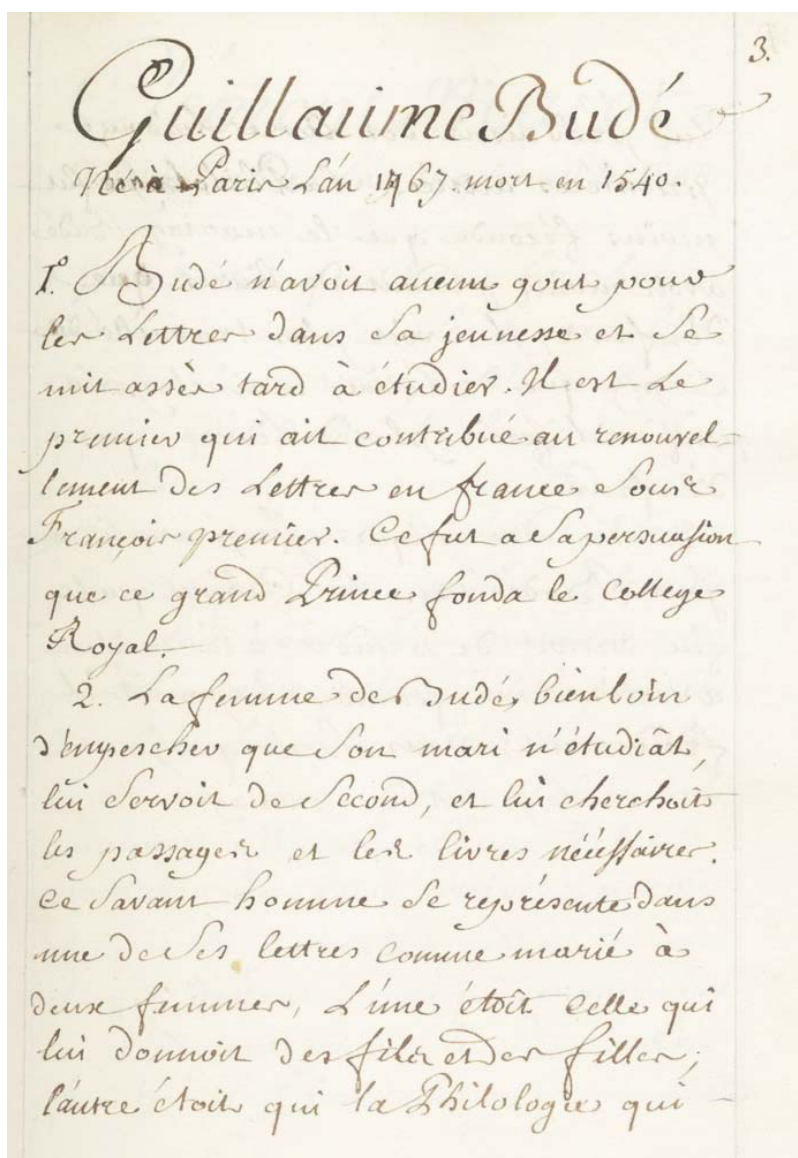 3.
Guillaume Budé
Né à Paris L'an 1467. mort en 1540.
1.º Budé n'avoit aucun gout pour
les Lettres dans Sa jeunesse et Se
mit assès tard à étudier. Il est Le
premier qui ait contribué au renouvel=
lement des Lettres en france Sous
François premier. Ce fut a Sa persuasion
que ce grand Prince fonda le College
Royal.
2. La femme de Budé, bien loin
d'empescher que Son mari n'étudiât,
lui Servoit de Second, et lui cherchoit
les passages et les livres nécéssaires.
Ce Savant homme Se représente dans
une de Ses lettres Comme marié à
deux femmes, L'une étoit Celle qui
lui donnoit des fils et des filles;
l'autre étoit qui la Philologie qui -